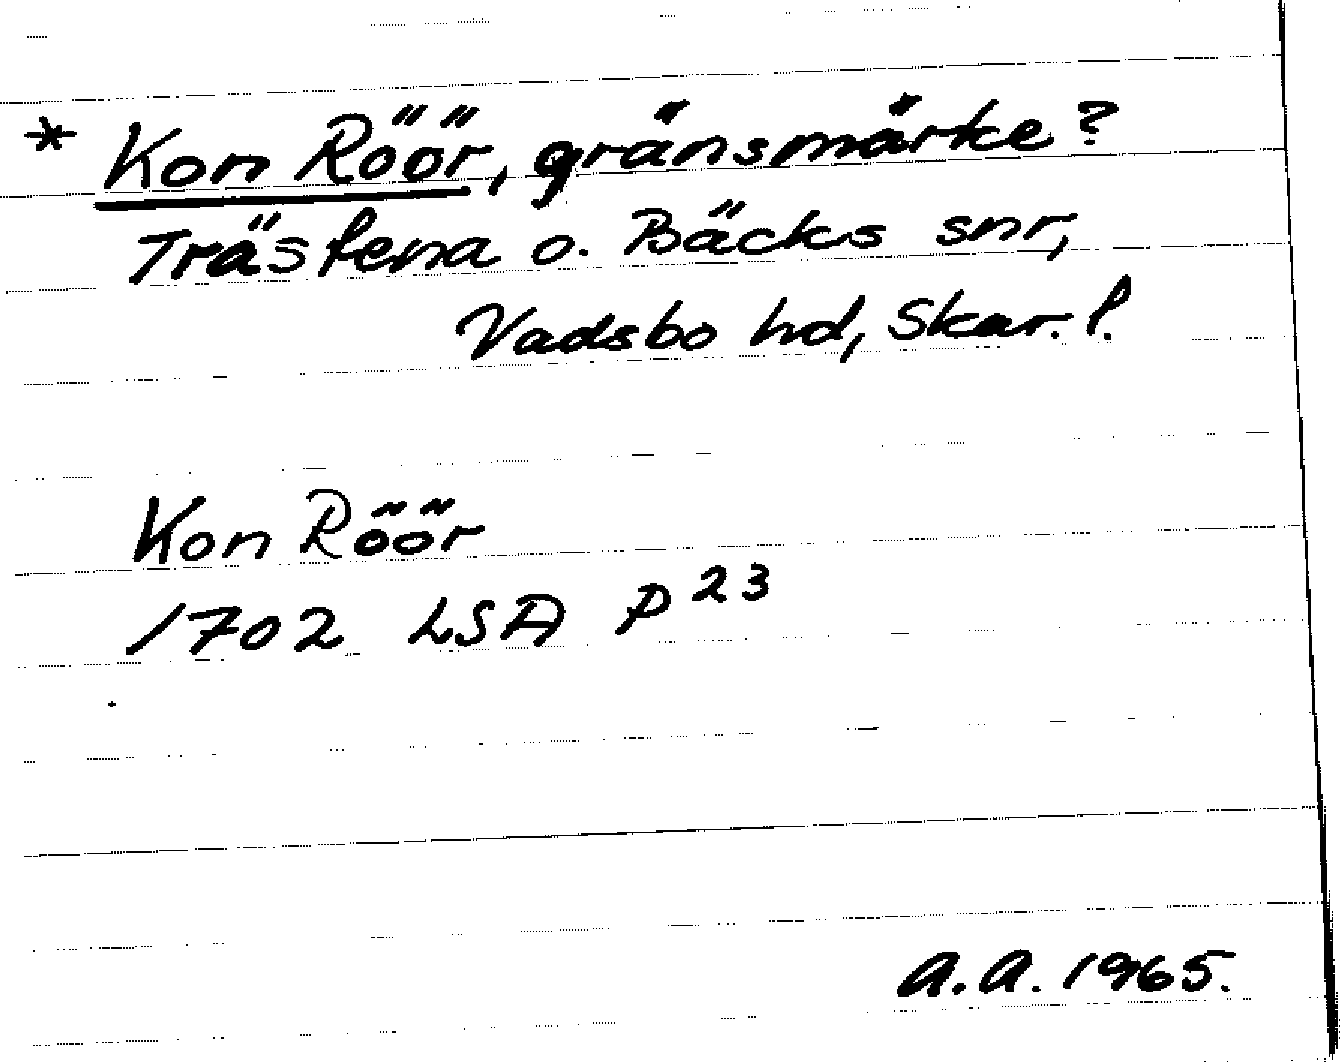 * Kon Röör, gränsmärke?
Trästena o. Bäcks snr,
Vadsbo hd, Skar. l.
Kon Röör
1702 LSA P 23
A.A. 1965.